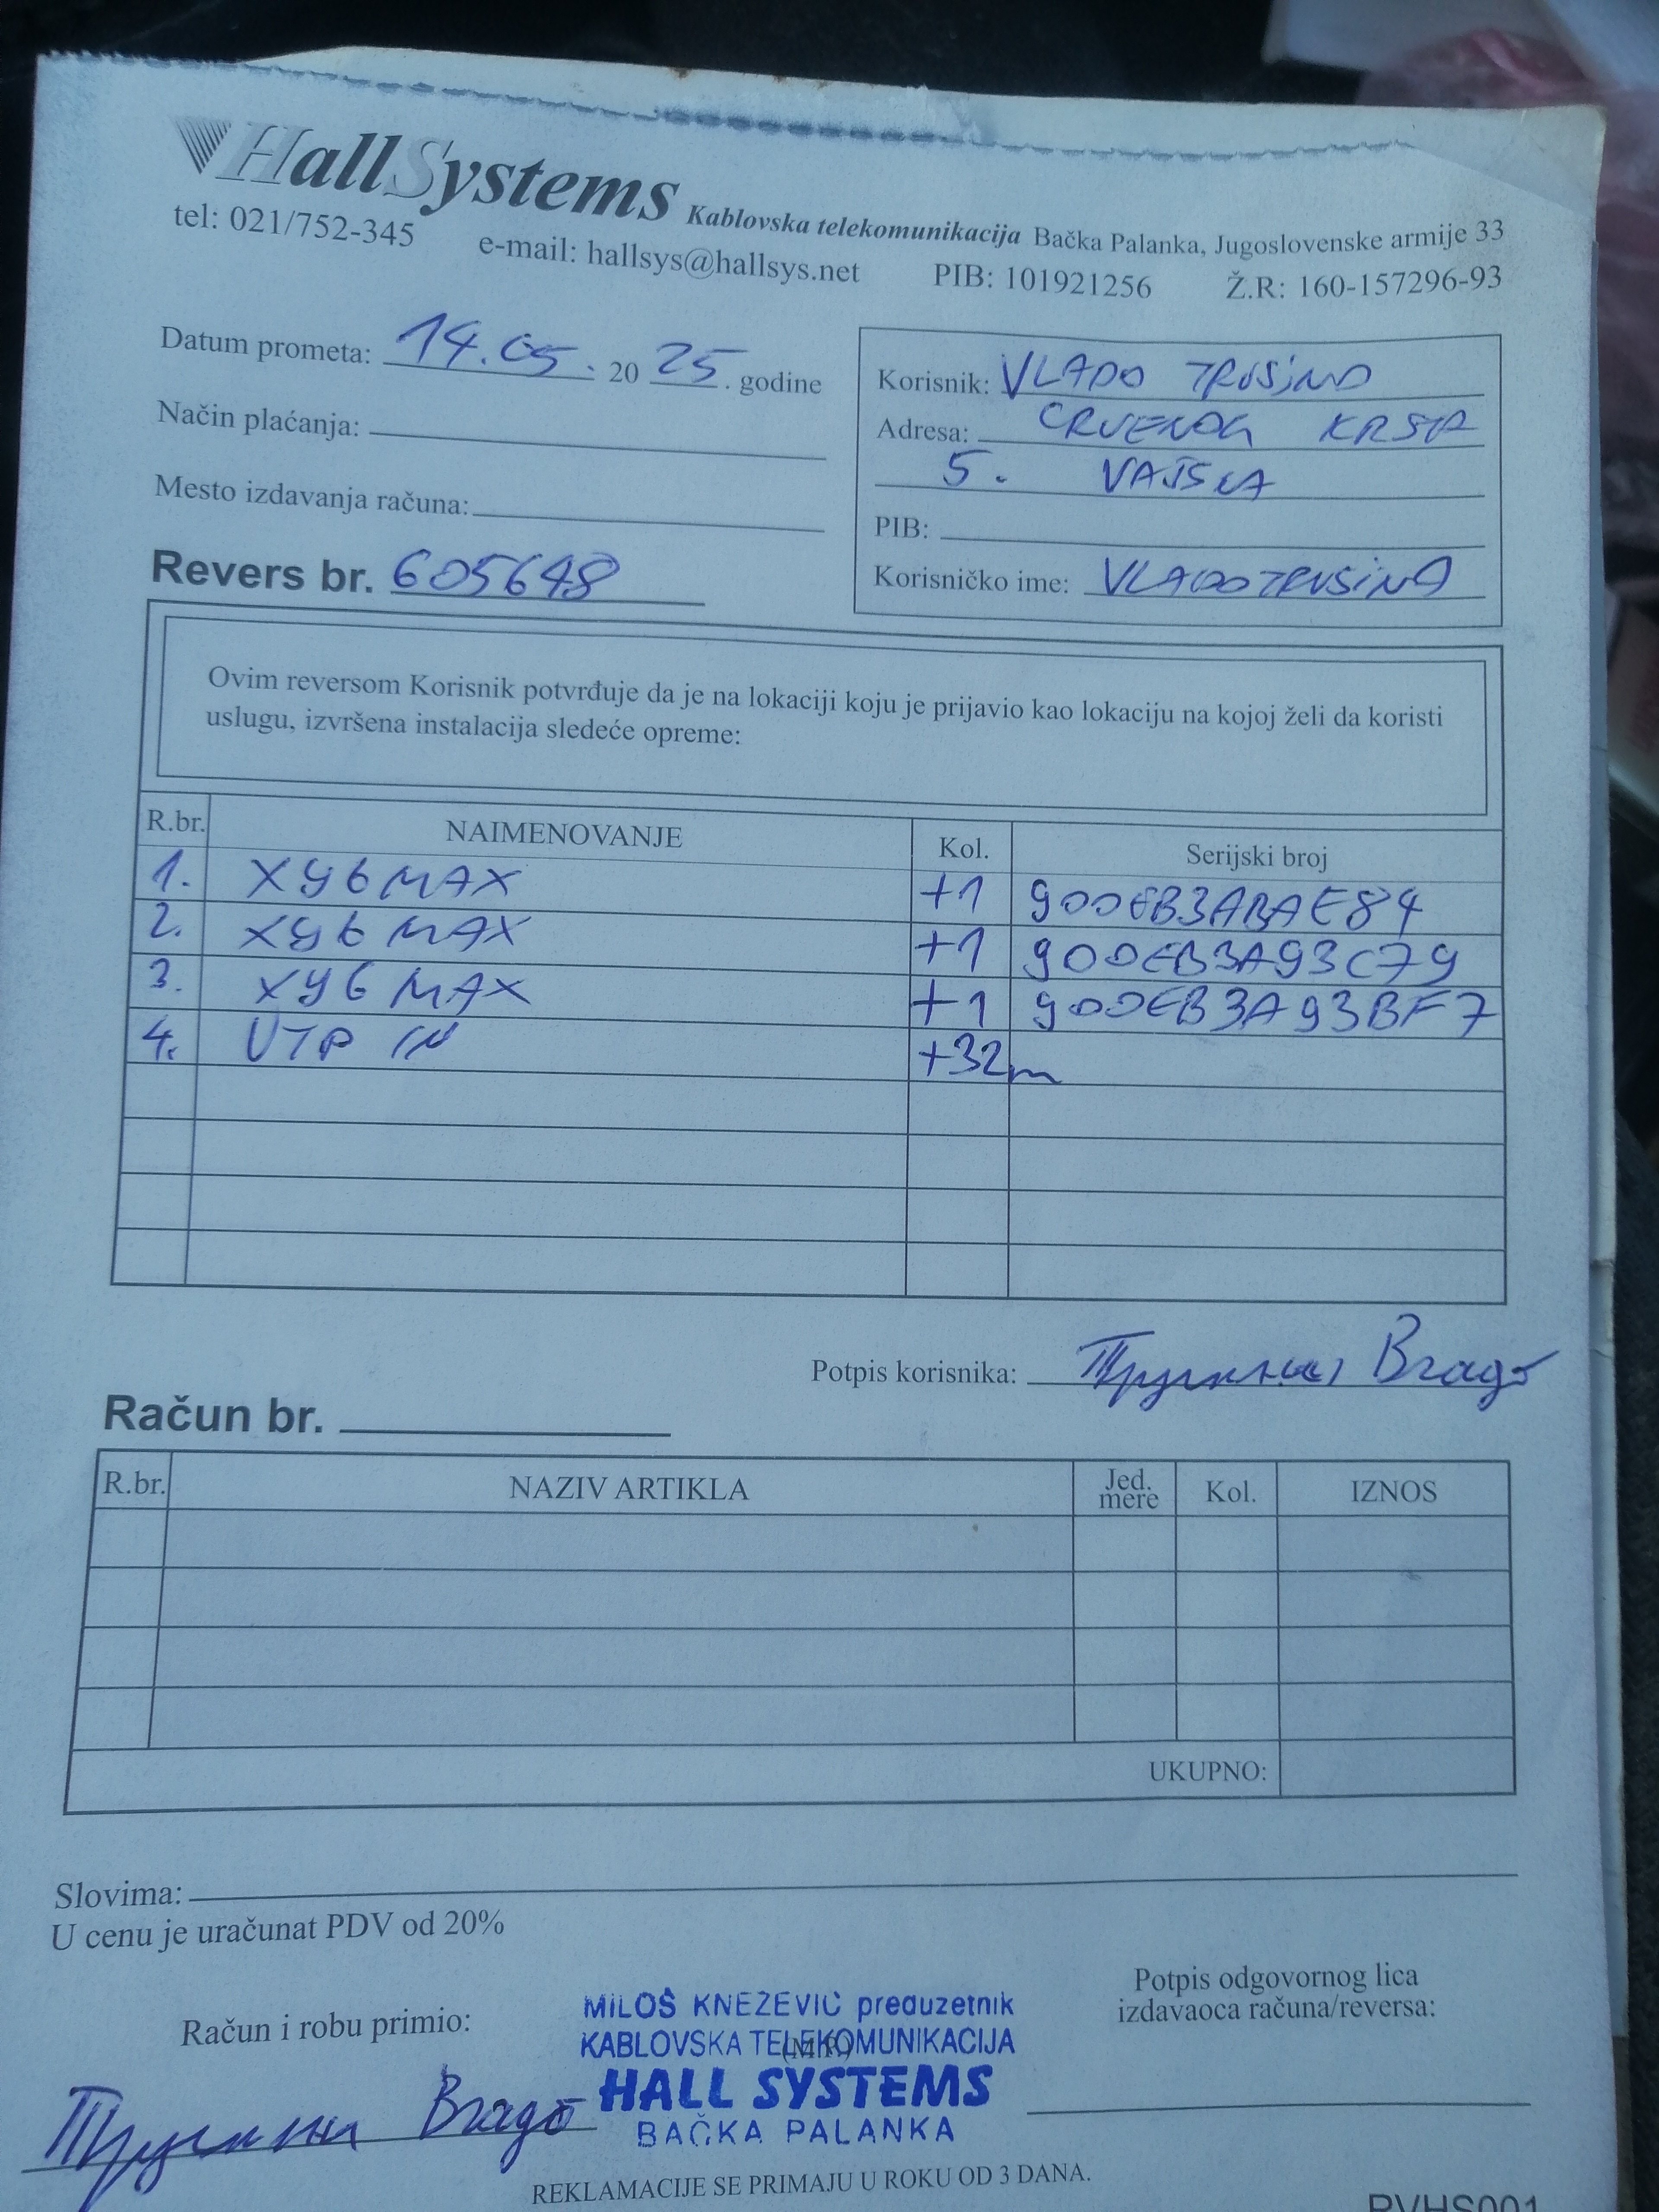 HallSystems Kablovska telekomunikacija Bačka Palanka, Jugoslovenske armije 33
tel: 021/752-345 e-mail: hallsys@hallsys.net PIB: 101921256 Ž.R: 160-157296-93
Datum prometa: 14.05. 20 25. godine
Način plaćanja:
Mesto izdavanja računa:
Revers br. 605648
Korisnik: VLADO TRUSINA
Adresa: CRVENOG KRSTA
5. VAJSKA
PIB:
Korisničko ime: VLADOTRUSINA
Ovim reversom Korisnik potvrđuje da je na lokaciji koju je prijavio kao lokaciju na kojoj želi da koristi
uslugu, izvršena instalacija sledeće opreme:
R.br. NAIMENOVANJE Kol. Serijski broj
1. XY6 MAX +1 900EB3ABAE84
2. XY6 MAX +1 900EB3A93C79
3. XY6 MAX +1 900EB3A93BF7
4. UTP IN +32m
Potpis korisnika: Трусина Владо
Račun br.
R.br. NAZIV ARTIKLA Jed. mere Kol. IZNOS
UKUPNO:
Slovima:
U cenu je uračunat PDV od 20%
Račun i robu primio:
Трусина Владо
MILOŠ KNEŽEVIĆ preduzetnik
KABLOVSKA TELEKOMUNIKACIJA
(M.P.)
HALL SYSTEMS
BAČKA PALANKA
Potpis odgovornog lica
izdavaoca računa/reversa:
REKLAMACIJE SE PRIMAJU U ROKU OD 3 DANA.
RVHS001